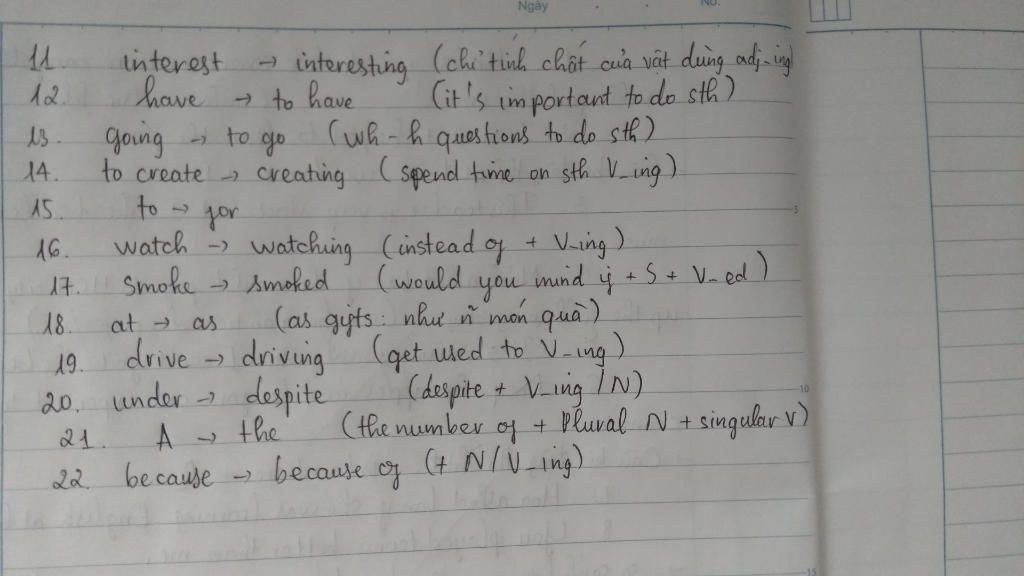 Ngày
No.
11. interest → interesting (chỉ tính chất của vật dùng adj-ing)
12. have → to have (it's important to do sth)
13. going → to go (wh-h questions to do sth)
14. to create → creating (spend time on sth V_ing)
15. to → for
5
16. watch → watching (instead of + V-ing)
17. smoke → smoked (would you mind if + S + V-ed)
18. at → as (as gifts: như ñ món quà)
19. drive → driving (get used to V_ing)
20. under → despite (despite + V_ing / N)
10
21. A → the (the number of + plural N + singular V)
22. because → because of (+ N/V_ing)
15